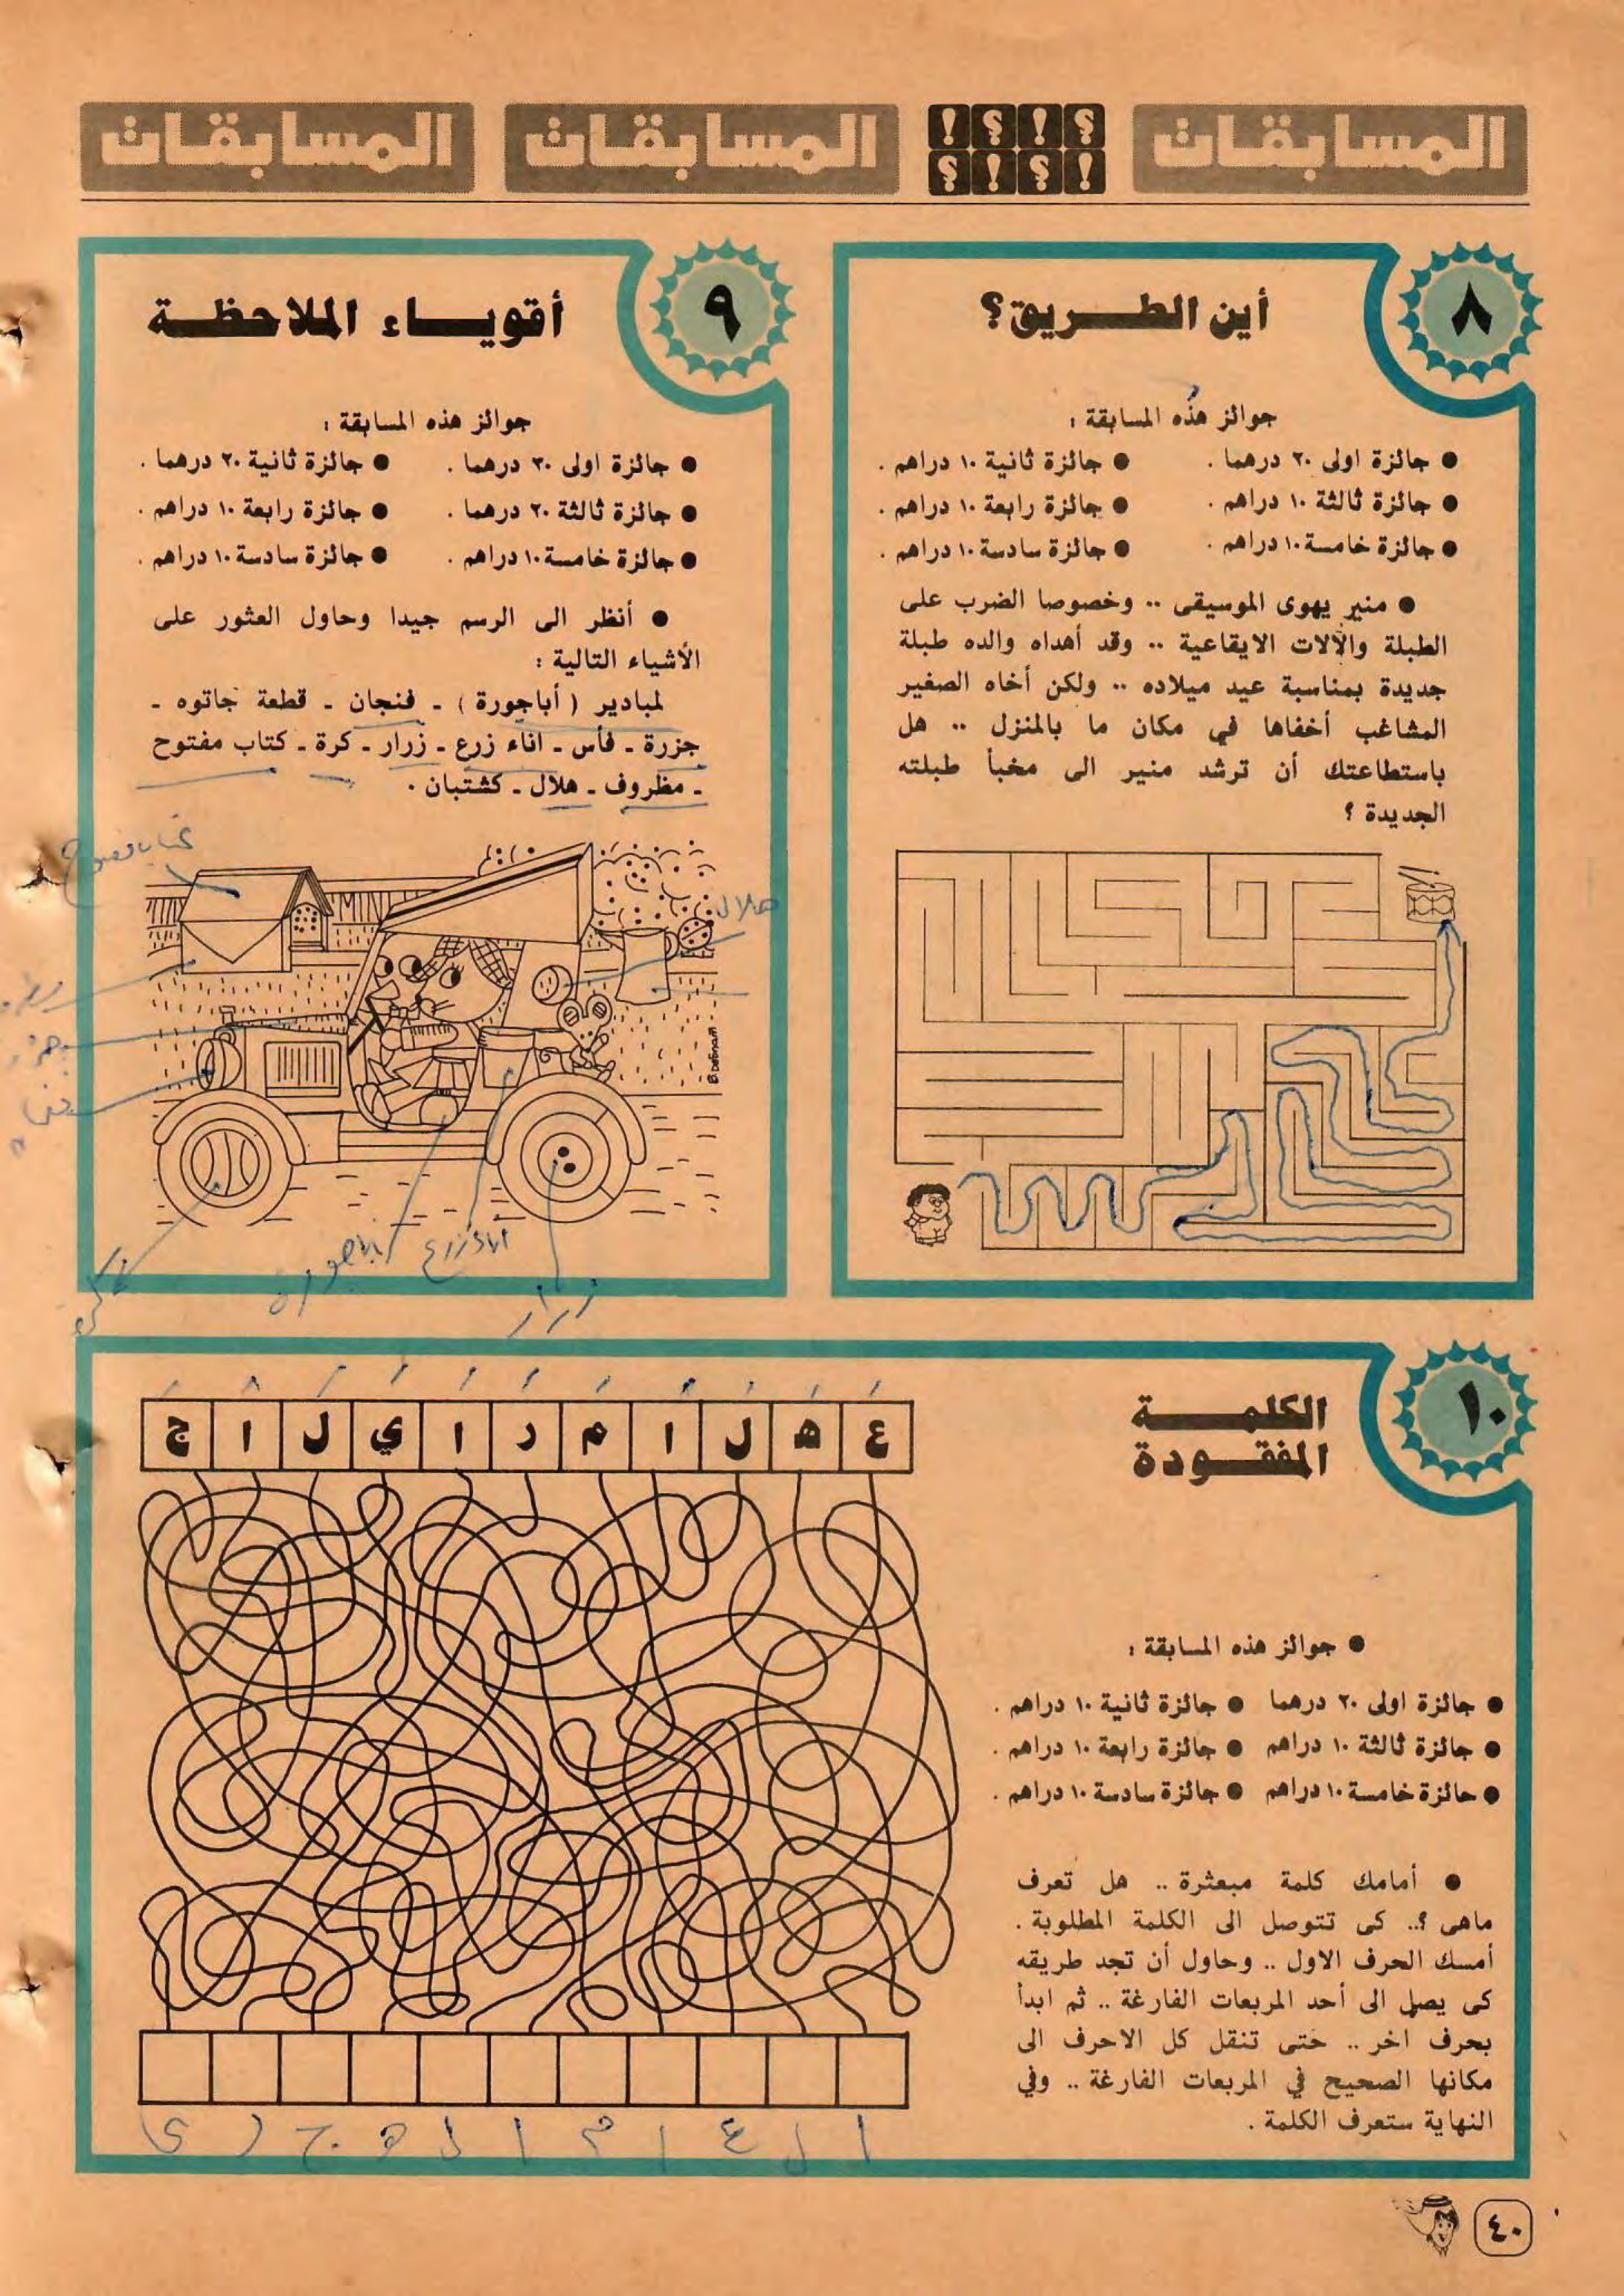 المسابقات ؟!؟! !؟!؟ المسابقات المسابقات
٨
أين الطريق؟
جوائز هذه المسابقة :
● جائزة اولى ٢٠ درهما . ● جائزة ثانية ١٠ دراهم .
● جائزة ثالثة ١٠ دراهم . ● جائزة رابعة ١٠ دراهم .
● جائزة خامسة ١٠ دراهم . ● جائزة سادسة ١٠ دراهم .
● منير يهوى الموسيقى .. وخصوصا الضرب على
الطبلة والآلات الايقاعية .. وقد أهداه والده طبلة
جديدة بمناسبة عيد ميلاده .. ولكن أخاه الصغير
المشاغب أخفاها في مكان ما بالمنزل .. هل
باستطاعتك أن ترشد منير الى مخبأ طبلته
الجديدة ؟
٩
أقوياء الملاحظة
جوائز هذه المسابقة :
● جائزة اولى ٣٠ درهما . ● جائزة ثانية ٢٠ درهما .
● جائزة ثالثة ٢٠ درهما . ● جائزة رابعة ١٠ دراهم .
● جائزة خامسة ١٠ دراهم . ● جائزة سادسة ١٠ دراهم .
● أنظر الى الرسم جيدا وحاول العثور على
الأشياء التالية :
لمبادير ( أباجورة ) ـ فنجان ـ قطعة جاتوه ـ
جزرة ـ فأس ـ اناء زرع ـ زرار ـ كرة ـ كتاب مفتوح
ـ مظروف ـ هلال ـ كشتبان .
هلال
زرار
كرة
١٠
الكلمة
المفقودة
● جوائز هذه المسابقة :
● جائزة اولى ٢٠ درهما ● جائزة ثانية ١٠ دراهم .
● جائزة ثالثة ١٠ دراهم ● جائزة رابعة ١٠ دراهم .
● جائزة خامسة ١٠ دراهم ● جائزة سادسة ١٠ دراهم .
● أمامك كلمة مبعثرة .. هل تعرف
ماهى ؟.. كى تتوصل الى الكلمة المطلوبة .
أمسك الحرف الاول .. وحاول أن تجد طريقه
كى يصل الى أحد المربعات الفارغة .. ثم ابدأ
بحرف اخر .. حتى تنقل كل الاحرف الى
مكانها الصحيح في المربعات الفارغة .. وفي
النهاية ستعرف الكلمة .
ع ه ل ا م ر ا ي ل ا ج
ا ل ع ا م ا ل ه ج ر ى
٤٠